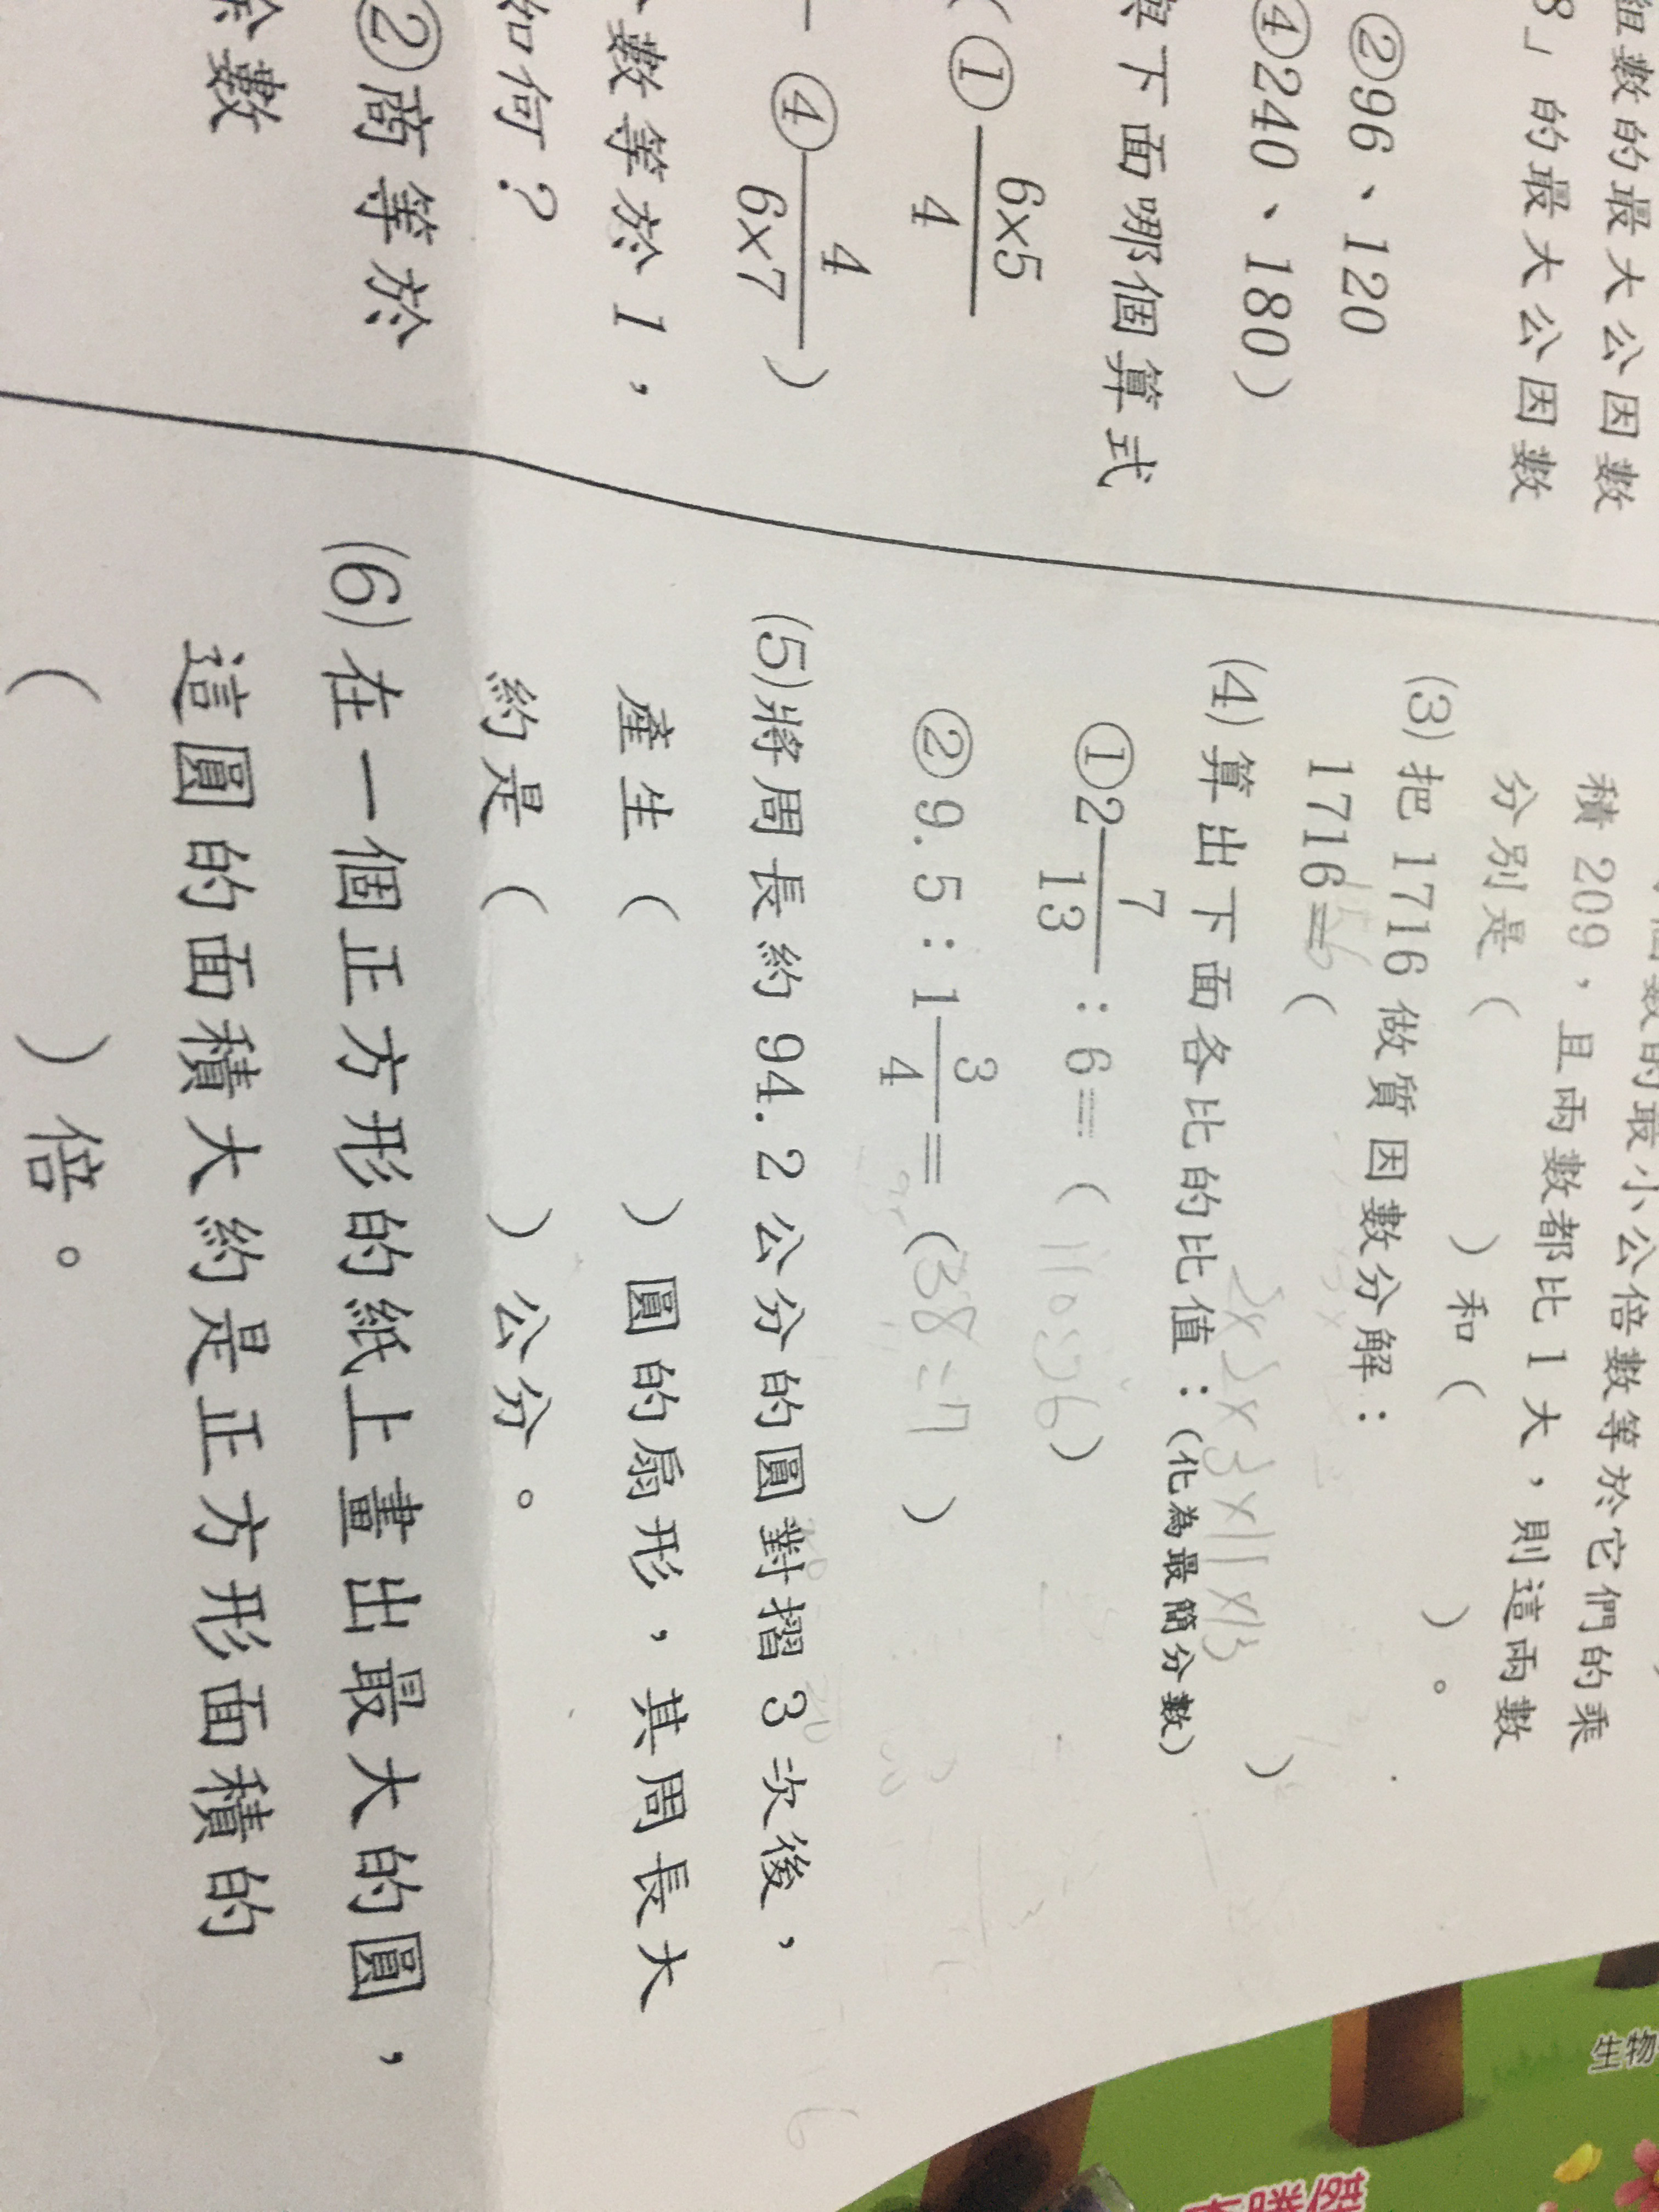 組數的最大公因數
8」的最大公因數
②96、120
④240、180)
與下面哪個算式
( ① 6×5/4
④ 4/6×7 )
數等於 1,
如何?
②商等於
餘數
數的最小公倍數等於它們的乘
積 209,且兩數都比 1 大,則這兩數
分別是( )和( )。
(3)把 1716 做質因數分解:
1716=( 2×2×3×11×13 )
(4)算出下面各比的比值:(化為最簡分數)
①2 7/13 : 6=( )
②9.5 : 1 3/4 =(38:7 )
(5)將周長約 94.2 公分的圓對摺 3 次後,
產生( )圓的扇形,其周長大
約是( )公分。
(6)在一個正方形的紙上畫出最大的圓,
這圓的面積大約是正方形面積的
( )倍。
生物